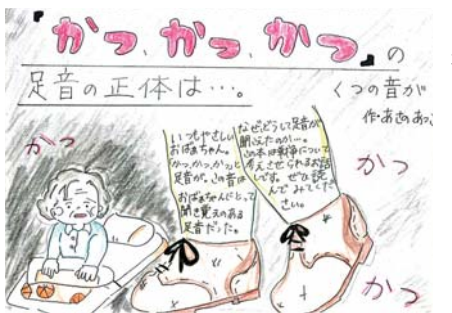 「かつ、かつ、かつ」の
足音の正体は…。
くつの音が
作・あさのあつこ
かつ
かつ
かつ
いつもやさしい
おばあちゃん。
「かつ、かつ、かつ」と
足音が。この音は
おばあちゃんにとって
聞き覚えのある
足音だった。
なぜ、どうして足音が
聞こえたのか…。
この本は戦争について
考えさせられるお話
です。ぜひ読
んでみてくだ
さい。